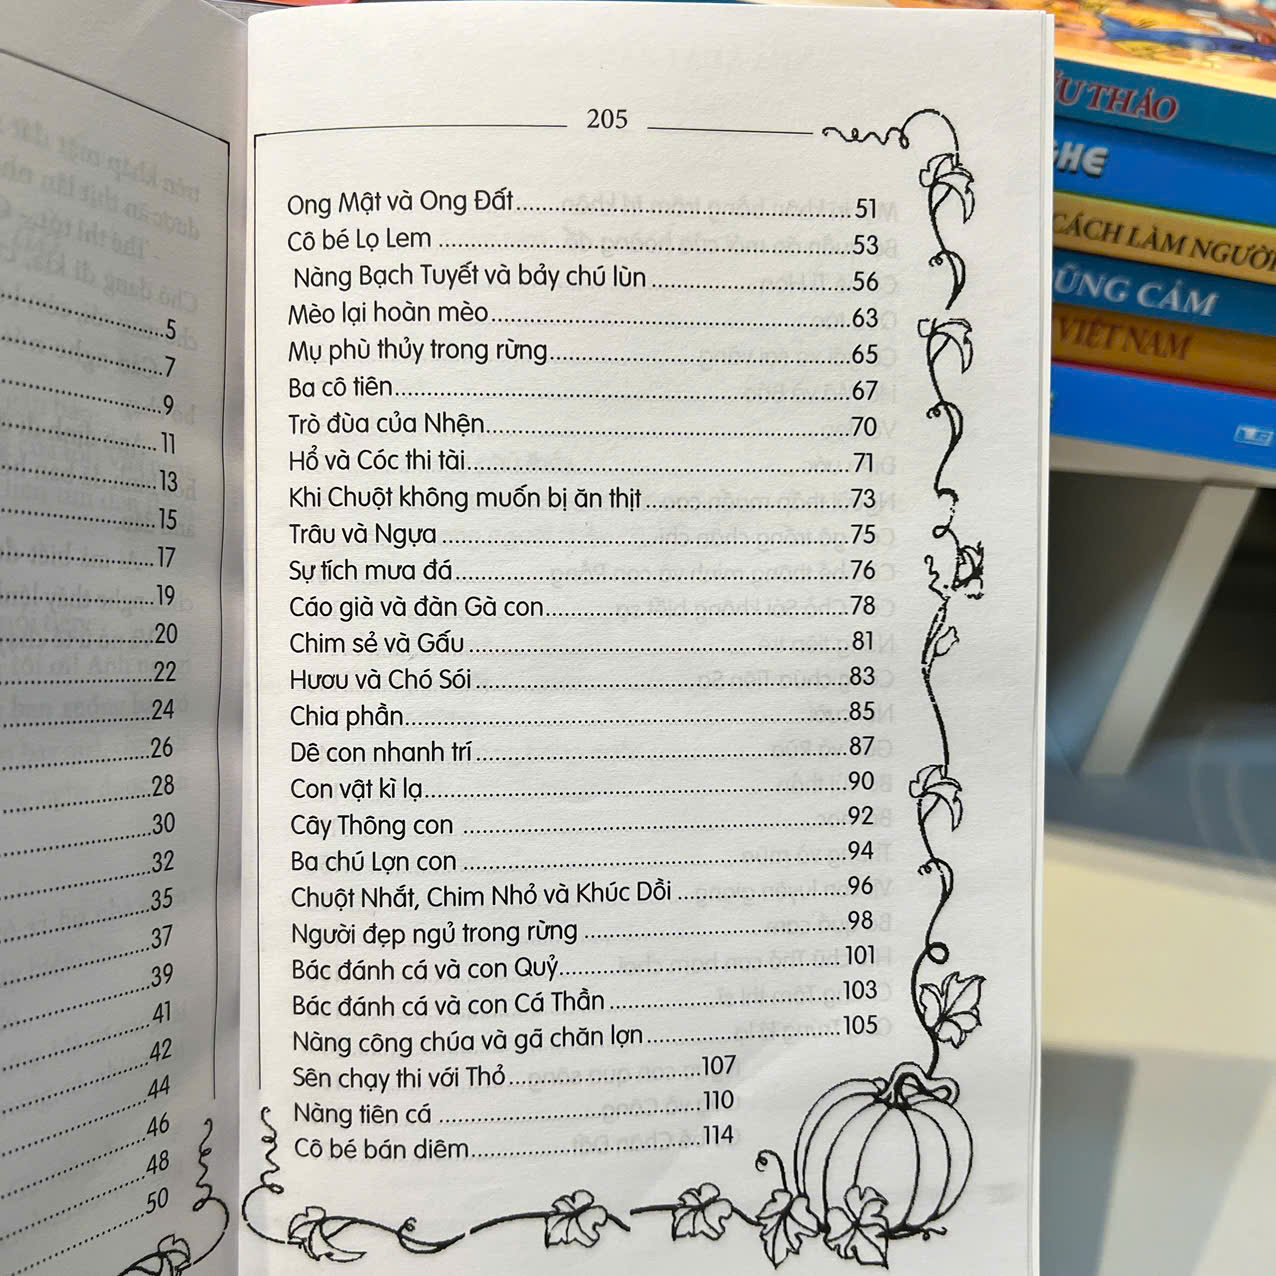 5
7
9
11
13
15
17
19
20
22
24
26
28
30
32
35
37
39
41
42
44
46
48
50
205
Ong Mật và Ong Đất 51
Cô bé Lọ Lem 53
Nàng Bạch Tuyết và bảy chú lùn 56
Mèo lại hoàn mèo 63
Mụ phù thủy trong rừng 65
Ba cô tiên 67
Trò đùa của Nhện 70
Hổ và Cóc thi tài 71
Khi Chuột không muốn bị ăn thịt 73
Trâu và Ngựa 75
Sự tích mưa đá 76
Cáo già và đàn Gà con 78
Chim sẻ và Gấu 81
Hươu và Chó Sói 83
Chia phần 85
Dê con nhanh trí 87
Con vật kì lạ 90
Cây Thông con 92
Ba chú Lợn con 94
Chuột Nhắt, Chim Nhỏ và Khúc Dồi 96
Người đẹp ngủ trong rừng 98
Bác đánh cá và con Quỷ 101
Bác đánh cá và con Cá Thần 103
Nàng công chúa và gã chăn lợn 105
Sên chạy thi với Thỏ 107
Nàng tiên cá 110
Cô bé bán diêm 114
THẢO
GHE
CÁCH LÀM NGƯỜI
DŨNG CẢM
VIỆT NAM